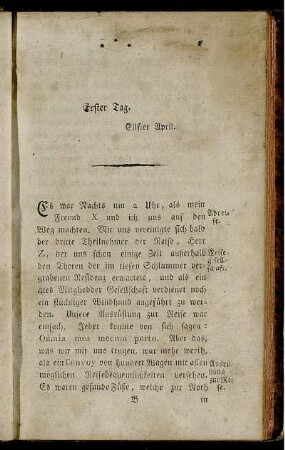 Erster Tag.
Eilfter April.
Es war Nachts um 2 Uhr, als mein
Freund X und ich uns auf den
Weg machten. Mit uns vereinigte sich bald
der dritte Theilnehmer der Reise, Herr
Z, der uns schon einige Zeit außerhalb
den Thoren der im tiefen Schlummer ver-
grabenen Residenz erwartete, und als ein
Mitglied der Gesellschaft verdienet noch
ein flüchtiger Windhund angeführt zu wer-
den. Unsere Ausrüstung zur Reise war
einfach. Jeder konnte von sich sagen:
Omnia mea mecum porto. Aber das,
was wir mit uns trugen, war mehr werth,
als ein Convoy von hundert Wagen mit allen
möglichen Reisebequemlichkeiten versehen.
Es waren gesunde Füße, welche zur Noth
B
in
Abrei-
se.
Reise-
gesell-
schaft.
Ausrü-
stung
zur Rei
se.